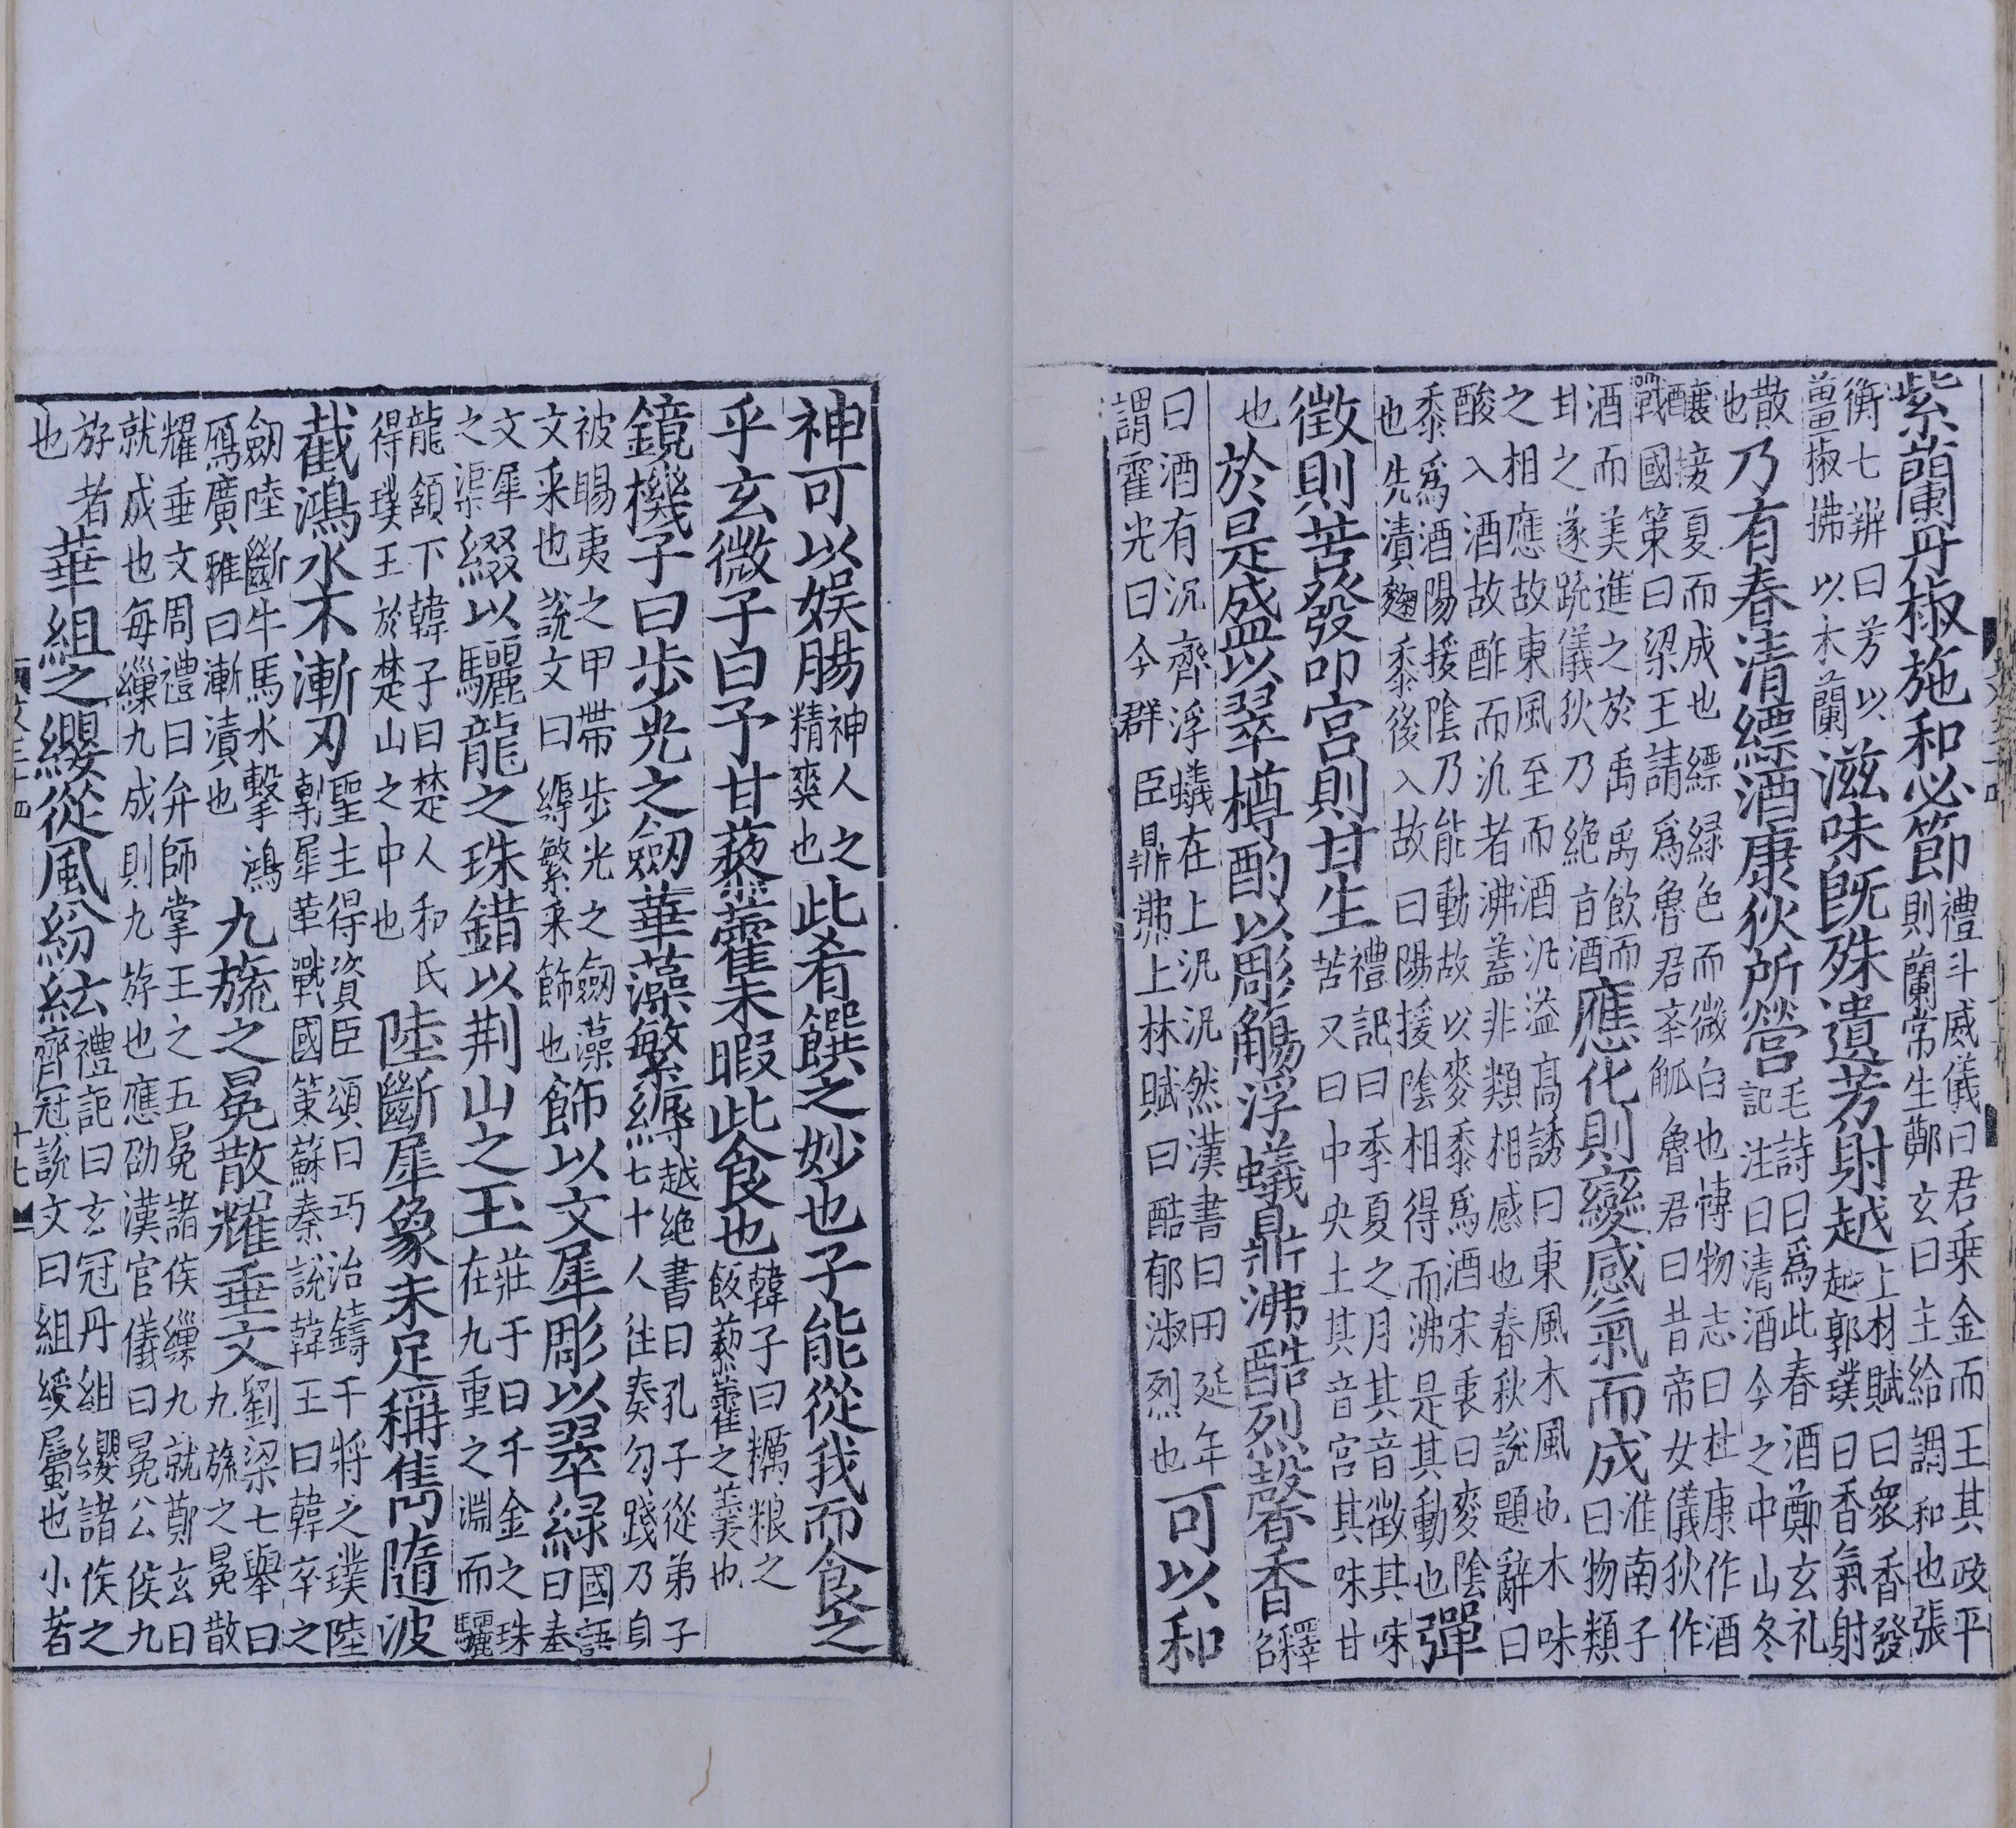 紫蘭丹椒施和必節禮斗威儀曰君乗金而王其政平
則蘭常生鄭玄曰主給調和也張
衡七辨曰芳以
薑椒拂以木蘭滋味旣殊遺芳射越上林賦曰衆香發
越郭璞曰香氣射
散
也乃有春清縹酒康狄所營毛詩曰爲此春酒鄭玄礼
記注曰清酒今之中山冬
釀接夏而成也縹緑色而微白也愽物志曰杜康作酒
戰國策曰梁王請爲魯君舉觚魯君曰昔帝女儀狄作
酒而美進之於禹禹飲而
甘之遂䟽儀狄乃絶㫖酒應化則變感氣而成淮南子
曰物類
之相應故東風至而酒汎溢髙誘曰東風木風也木味
酸入酒故酢而汎者沸蓋非類相感也春秋說題辭曰
黍爲酒陽援隂乃能動故以麥黍爲酒宋衷曰麥隂
也先漬麴黍後入故曰陽援隂相得而沸是其動也彈
徵則苦發叩宮則甘生禮記曰季夏之月其音徵其味
苦又曰中央土其音宮其味甘
也於是盛以翠樽酌以彫觴浮蟻鼎沸酷烈馨香釋
名
曰酒有沉齊浮蟻在上汎汎然漢書曰田延年
謂霍光曰今群臣鼎沸上林賦曰酷郁淑烈也可以和
神可以娛腸神人之
精爽也此肴饌之妙也子能從我而食之
乎玄微子曰予甘藜藿未暇此食也韓子曰糲粮之
飯藜藿之羹也
鏡機子曰歩光之劒華藻繁縟越絶書曰孔子從弟子
七十人往奏勾踐乃自
被賜夷之甲帶歩光之劒藻
文采也說文曰縟繁采飾也飾以文犀彫以翠緑國語
曰奉
文犀
之渠綴以驪龍之珠錯以荆山之玉莊子曰千金之珠
在九重之淵而驪
龍頷下韓子曰楚人和氏
得璞王於楚山之中也陸斷犀象未足稱雋隨波
截鴻水不漸刃聖主得賢臣頌曰巧冶鑄干將之璞陸
剸犀革戰國策蘇秦說韓王曰韓卒之
劒陸斷牛馬水擊鴻
鴈廣雅曰漸漬也九旒之冕散耀垂文劉梁七舉曰
九旒之冕散
耀垂文周禮曰弁師掌王之五冕諸侯繅九就鄭玄曰
就成也每繅九成則九斿也應劭漢官儀曰冕公侯九
斿者
也華組之纓從風紛紜禮記曰玄冠丹組纓諸侯之
齊冠說文曰組綬屬也小者
十七